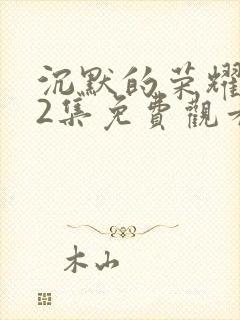 沉默的荣耀
2集免費觀看
木山